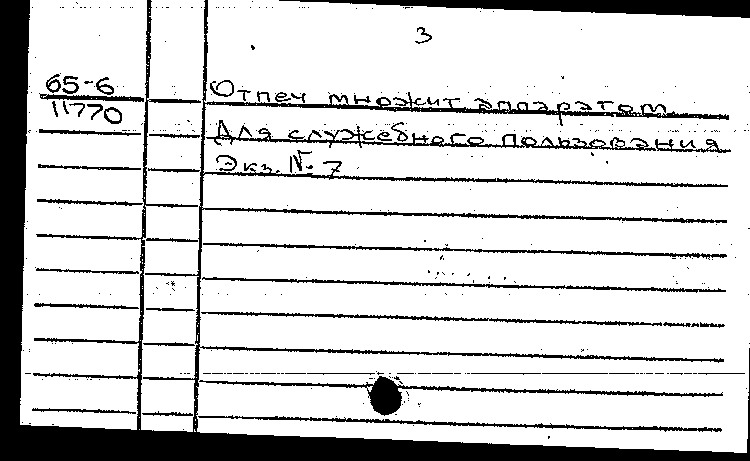 3
65-6
11770
Отпеч множит аппаратом
Для служебного пользования
Экз. № 7